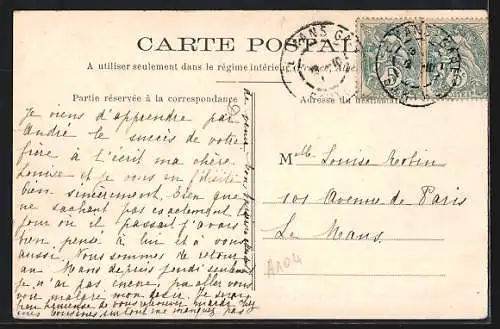 CARTE POSTALE
A utiliser seulement dans le régime intérieur
Partie réservée à la correspondance
Adresse du destinataire
Je viens d'apprendre par
André le succès de votre
frère à l'écrit ma chère
Louise et je vous en félicite
bien sincèrement. Bien que
ne sachant pas exactement le
jour où il passait j'avais
bien pensé à lui et à vous
aussi. Nous sommes de retour
au Mans depuis jeudi seulement
je n'ai pas encore pu aller vous
voir malgré mon désir. Je serai
bien heureuse de vous retrouver mardi chez
mes cousines surtout ne manquez pas
de venir
Melle Louise
101 Avenue de Paris
Le Mans
A104